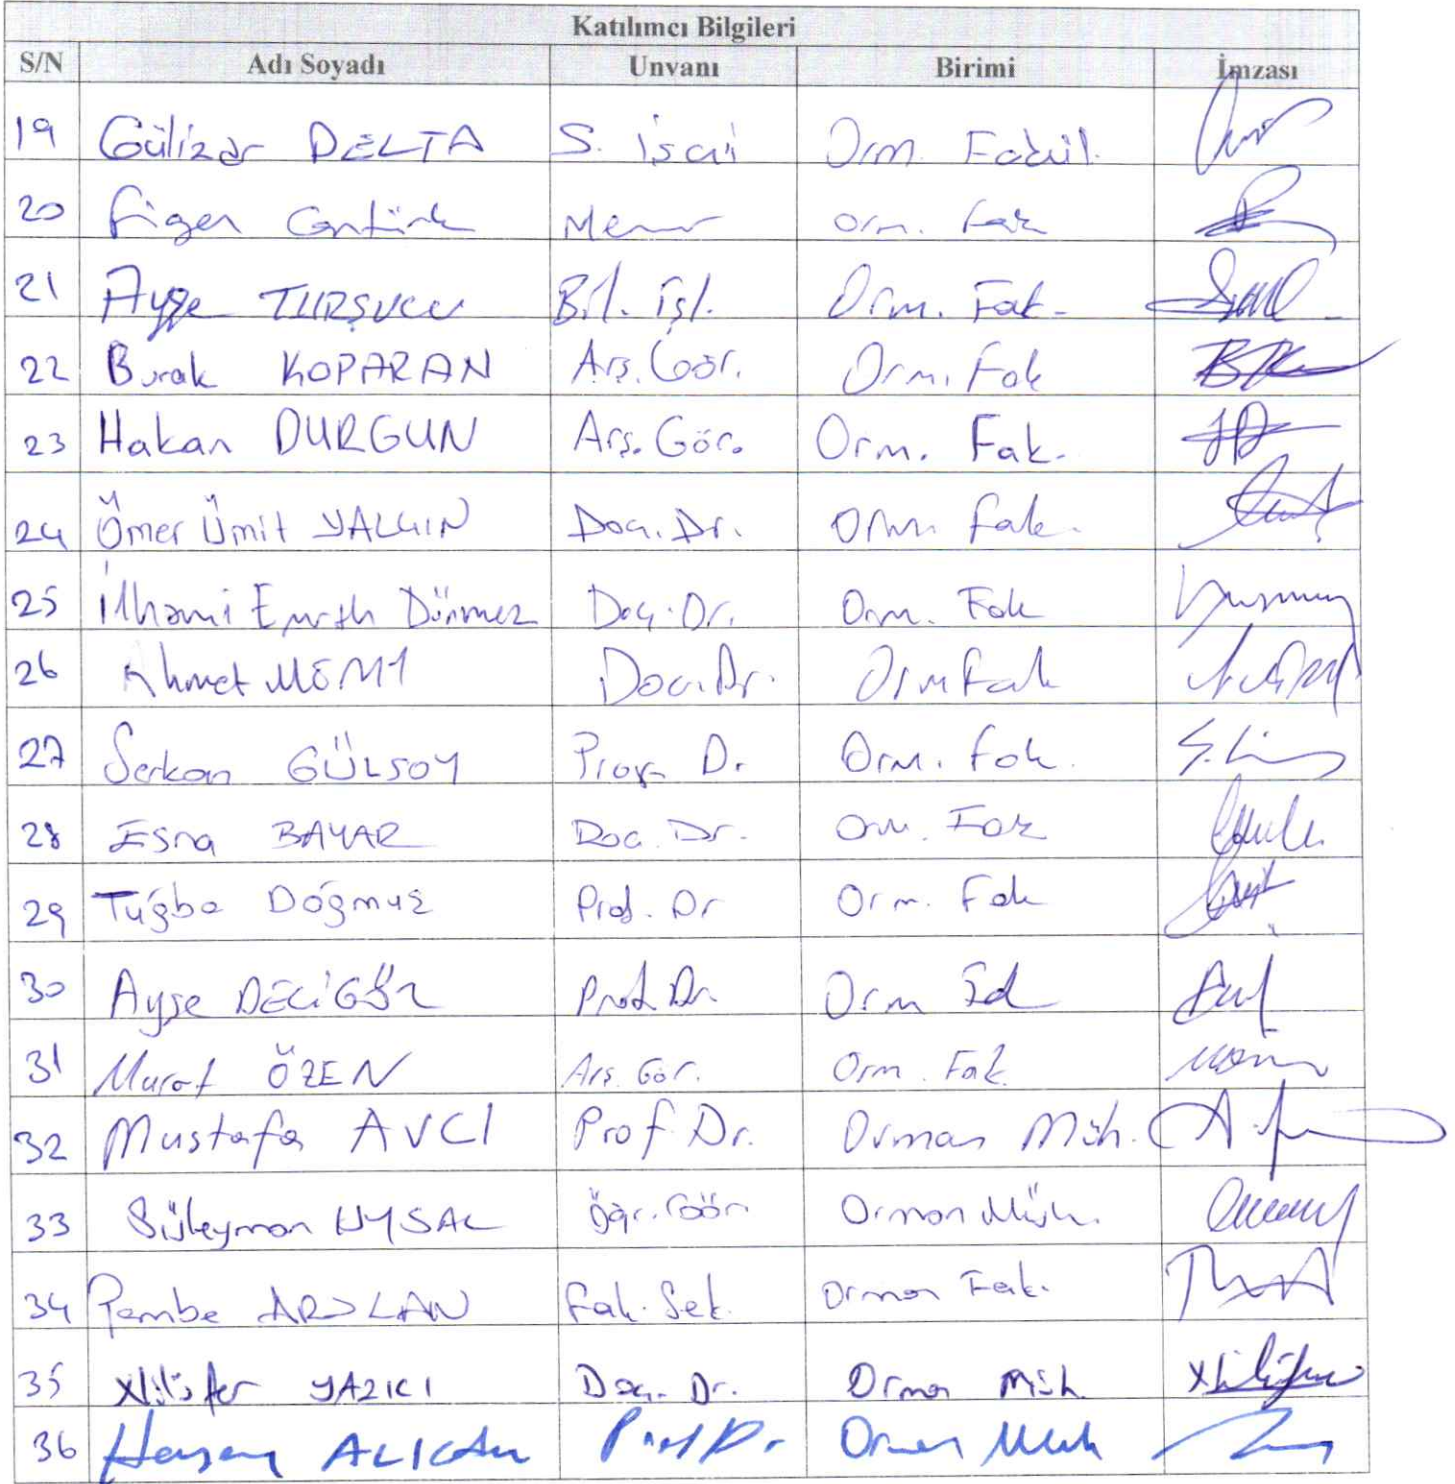 Katılımcı Bilgileri
S/N Adı Soyadı Unvanı Birimi İmzası
19 Gülizar DELTA S. İşçi Orm. Fakül.
20 Figen Cantürk Memur Orm. Fak
21 Ayşe TURŞUCU Bil. İşl. Orm. Fak.
22 Burak KOPARAN Arş. Gör. Orm. Fak
23 Hakan DURGUN Arş. Gör. Orm. Fak.
24 Ömer Ümit YALÇIN Doç. Dr. Orm. Fak.
25 İlhami Emrah Dönmez Doç. Dr. Orm. Fak
26 Ahmet MERT Doç. Dr. Orm Fak
27 Serkan GÜLSOY Prof. D. Orm. Fak.
28 Esra BAYAR Doç. Dr. Orm. Fak
29 Tuğba Doğmuş Prof. Dr Orm. Fak
30 Ayşe DELİGÖZ Prof. Dr. Orm
31 Murat ÖZEN Arş. Gör. Orm. Fak.
32 Mustafa AVCI Prof Dr. Orman Müh.
33 Süleyman UYSAL Öğr. Gör Orman Müh.
34 Pembe ARSLAN Fak. Sek. Orman Fak.
35 Nilüfer YAZICI Doç. Dr. Orman Müh
36 ALKAN Prof Dr. Orman Müh